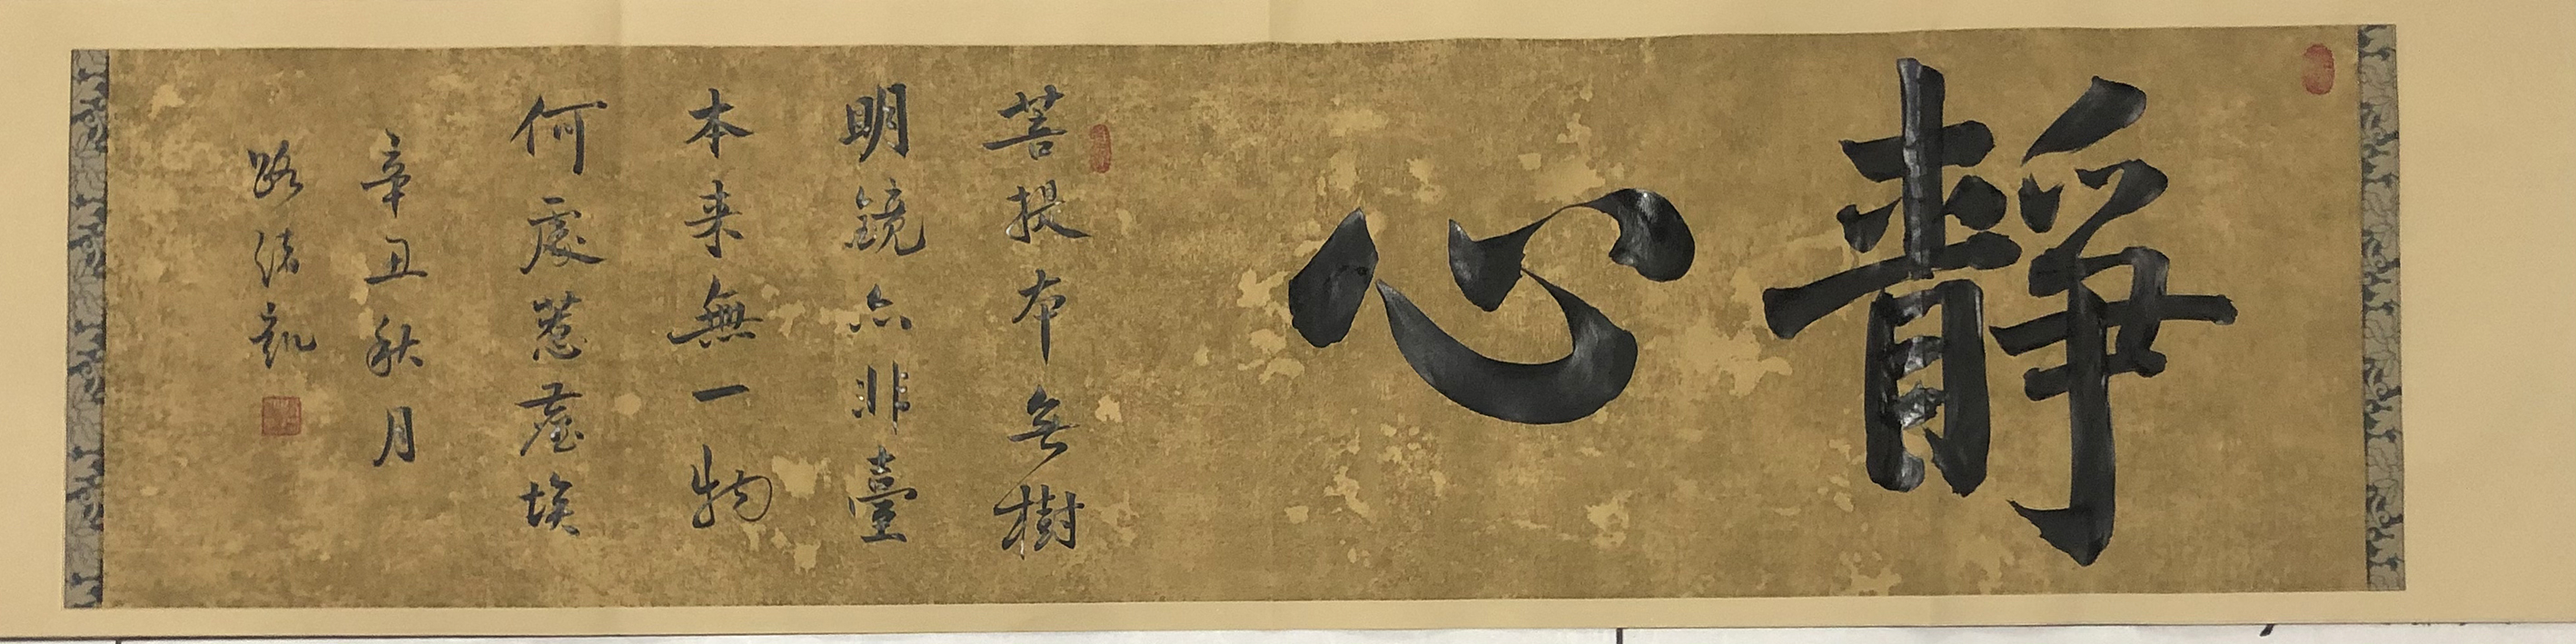 靜心
菩提本无樹
明鏡亦非臺
本来無一物
何處惹塵埃
辛丑秋月
路绪凱